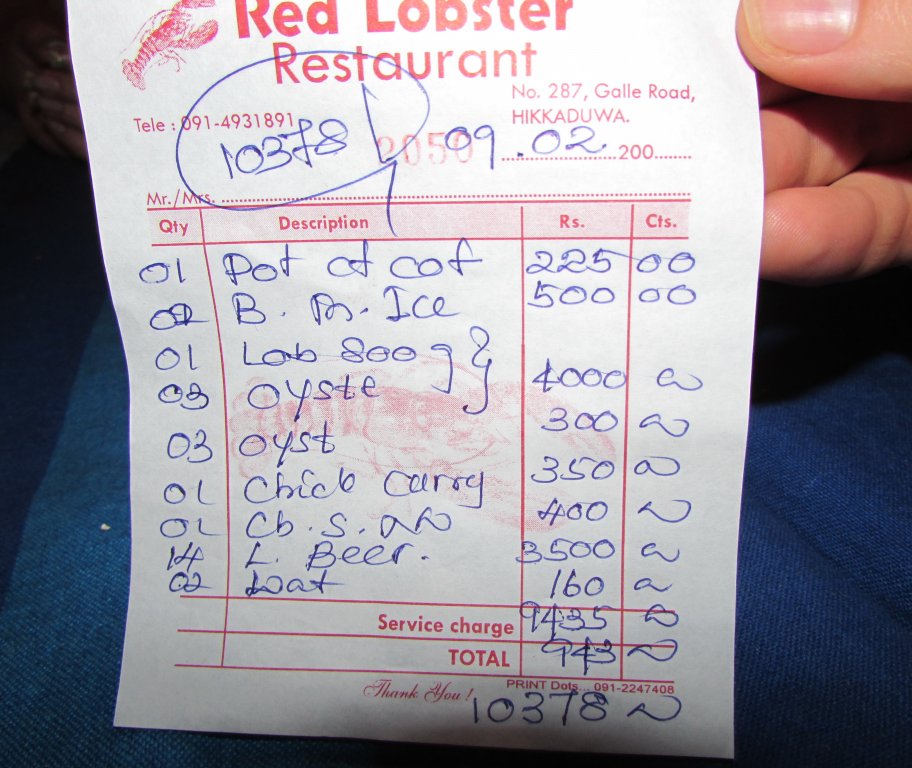 Red Lobster
Restaurant
No. 287, Galle Road,
Tele : 091-4931891
HIKKADUWA.
10378
2050
09.02 200
Mr./Mrs.
Qty Description Rs. Cts.
01 Pot of cof 225 00
02 B. Ice 500 00
01 Lob 800 g
03 Oyste 4000
03 Oyst 300
01 Chick Curry 350
01 Ch. S. 400
14 L. Beer. 3500
02 Wat 160
Service charge 9435
TOTAL 943
Thank You! PRINT Dots... 091-2247408
10378